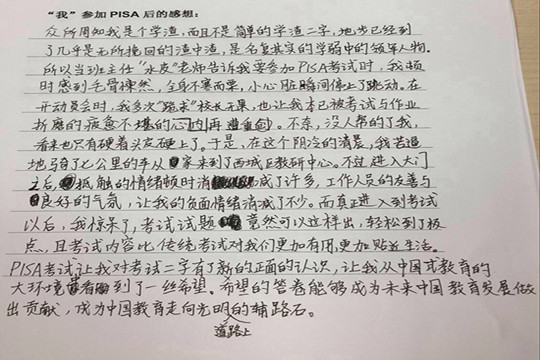 “我”参加PISA后的感想：
众所周知我是个学渣，而且不是简单的学渣二字，地步已经到
了几乎是无所挽回的渣中渣，是名复其实的学弱中的领军人物。
所以当班主任“水皮”老师告诉我要参加PISA考试时，我顿
时感到毛骨悚然，全身不寒而栗，小心脏瞬间停止了跳动。在
开动员会时，我多次“跪求”校长无果，也让我本已被考试与作业
折磨的疲惫不堪的心内再遭重创。不余，没人帮的了我，
看来也只有硬着头皮硬上了。于是，在这个阴冷的清晨，我苦逼
地骑了七公里的车从家来到了西城区教研中心。不过进入大门
之后，抵触的情绪顿时消减了许多，工作人员的友善与
良好的气氛，让我的负面情绪消减了不少。而真正进入到考试
以后，我惊呆了，考试试题竟然可以这样出，轻松到了极
点，且考试内容比传统考试对我们更加有用更加贴近生活。
PISA考试让我对考试二字有了新的正面的认识，让我从中国式教育的
大环境看到了一丝希望。希望的答卷能够成为未来中国教育发展做
出贡献，成为中国教育走向光明的道路上辅路石。